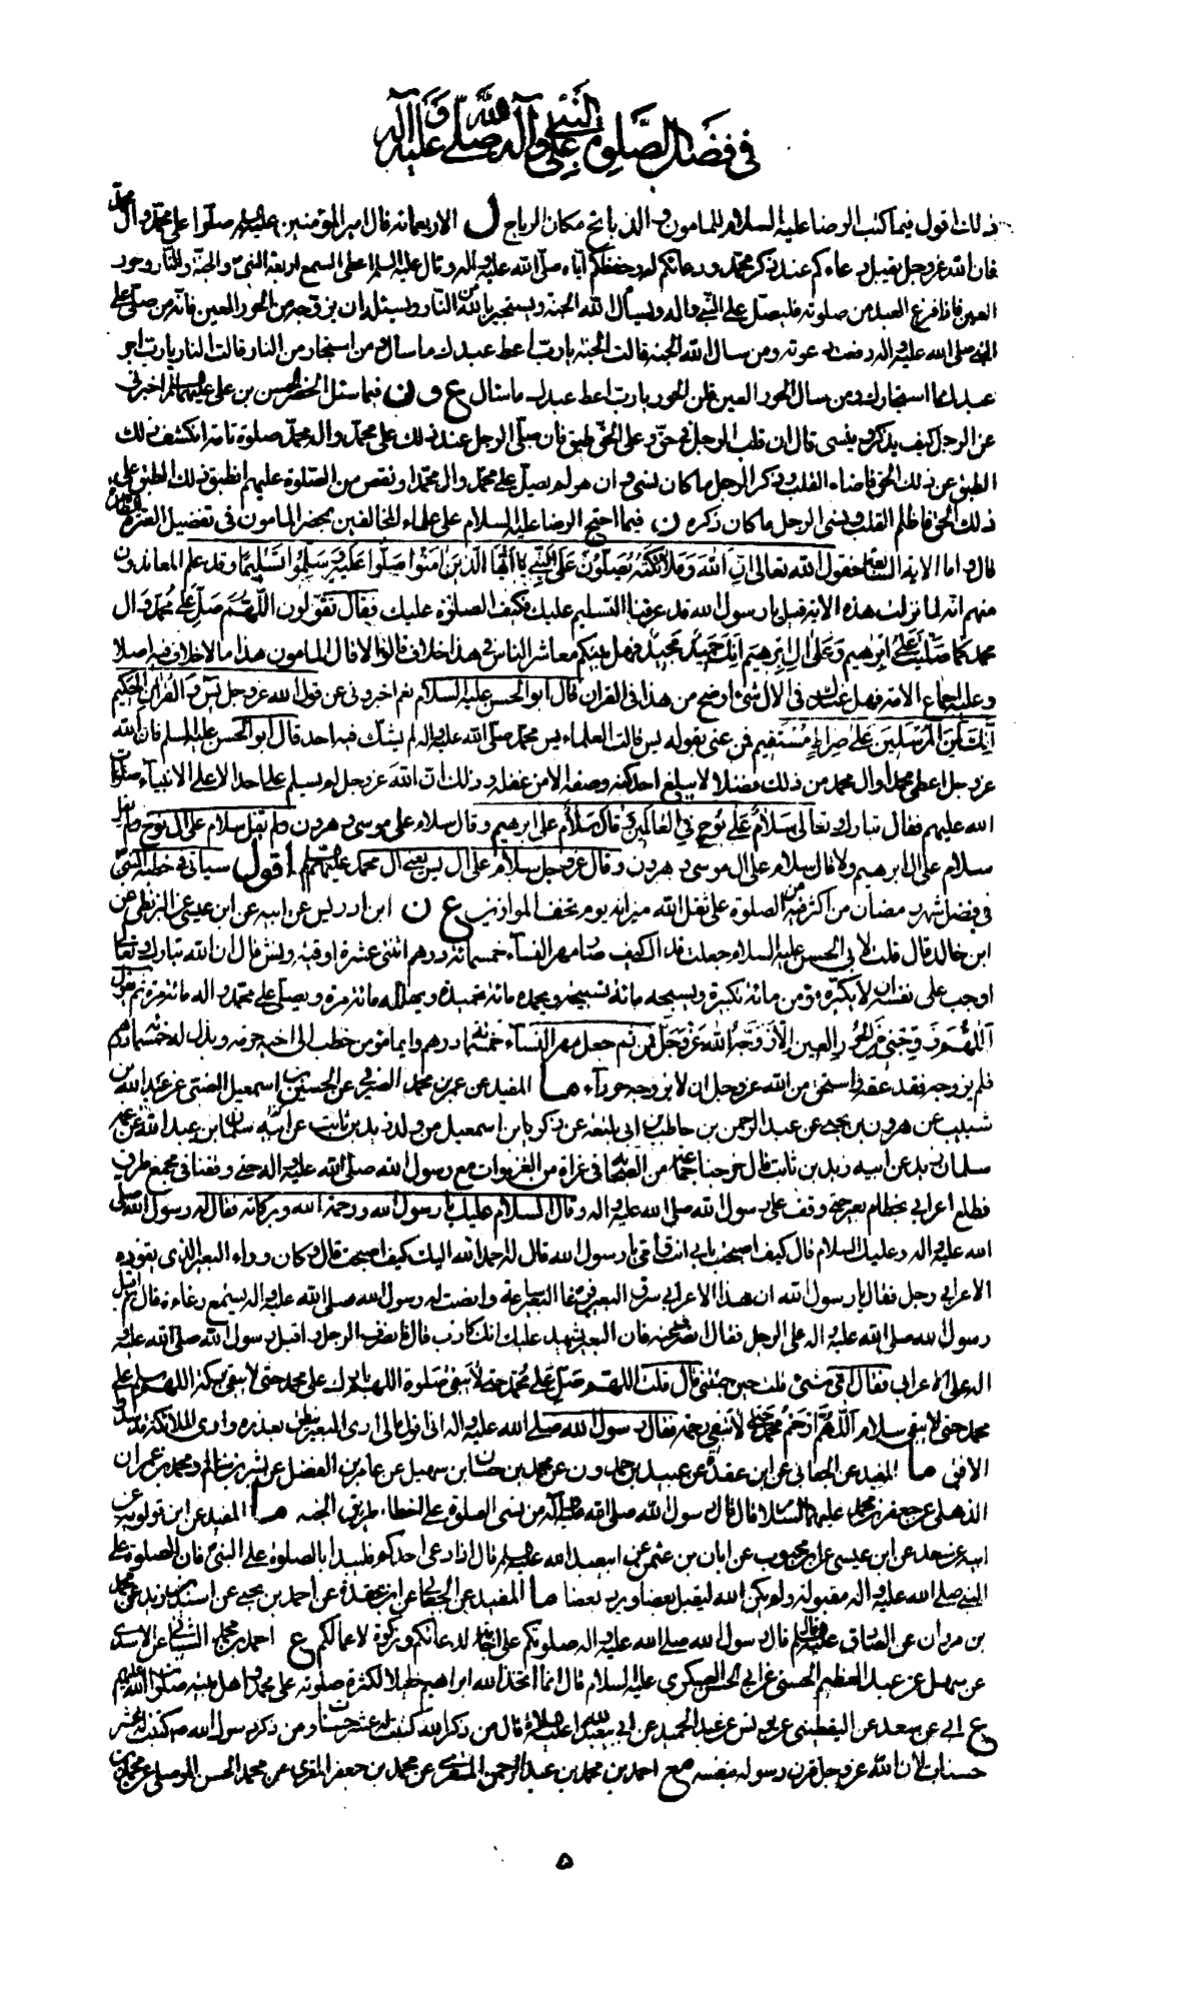 في فضل الصلوة على النبي وآله صلى الله عليه وآله
ذلك اقول فيما كتب الرضا عليه السلام للمامون والذبائح مكان الرياح ل الاربعمائة قال امير المؤمنين عليه السلم صلوا على محمد وآل محمد
فان الله عز وجل يقبل دعاءكم عند ذكر محمد ودعائكم له وحفظكم اياه صلى الله عليه واله وقال عليه السلم اعطى السمع اربعة النبي والجنة والنار وحور
العين فاذا فرغ العبد من صلوته فليصل على النبي واله ويسأل الله الجنة ويستجير بالله من النار ويسئله ان يزوجه من الحور العين فانه من صلى على
النبي صلى الله عليه واله رفعت دعوته ومن سال الله الجنة قالت الجنة يا رب اعط عبدك ما سال ومن استجار من النار قالت النار يا رب اجر
عبدك مما استجارك ومن سال الحور العين قلن الحور يا رب اعط عبدك ما سال ع ون فيما سئل الخضر الحسن بن علي عليهما السلم اخبرني
عن الرجل كيف يذكر وينسى قال ان قلب الرجل في حق وعلى الحق طبق فان صلى الرجل عند ذلك على محمد وال محمد صلوة تامة انكشف ذلك
الطبق عن ذلك الحق فاضاء القلب وذكر الرجل ما كان نسى وان هو لم يصل على محمد وال محمد او نقص من الصلوة عليهم انطبق ذلك الطبق على
ذلك الحق فاظلم القلب ونسى الرجل ما كان ذكره ن فيما احتج الرضا عليه السلام على علماء المخالفين بمحضر المامون في تفضيل العترة الطاهرة
قال واما الاية السابعة فقول الله تعالى ان الله وملائكته يصلون على النبي يا ايها الذين امنوا صلوا عليه وسلموا تسليما وقد علم المعاندون
منهم انه لما نزلت هذه الاية قيل يا رسول الله قد عرفنا التسليم عليك فكيف الصلوة عليك فقال تقولون اللهم صل على محمد وال
محمد كما صليت على ابرهيم وعلى ال ابرهيم انك حميد مجيد فهل بينكم معاشر الناس في هذا خلاف قالوا لا قال المامون هذا ما لا خلاف فيه اصلا
وعليه اجماع الامة فهل عندك في الال شيء اوضح من هذا في القران قال ابو الحسن عليه السلام نعم اخبروني عن قول الله عز وجل يس والقران الحكيم
انك لمن المرسلين على صراط مستقيم فمن عنى بقوله يس قالت العلماء يس محمد صلى الله عليه واله لم يشك فيه احد قال ابو الحسن عليه السلم فان الله
عز وجل اعطى محمدا وال محمد من ذلك فضلا لا يبلغ احد كنه وصفه الا من عقله وذلك ان الله عز وجل لم يسلم على احد الا على الانبياء صلوات
الله عليهم فقال تبارك وتعالى سلام على نوح في العالمين وقال سلام على ابرهيم وقال سلام على موسى وهرون ولم يقل سلام على ال نوح ولم يقل
سلام على ال ابرهيم ولا قال سلام على ال موسى وهرون وقال عز وجل سلام على ال يس يعنى ال محمد عليهم السلم اقول سياتي في خطبة النبي
في فضل شهر رمضان من اكثر فيه من الصلوة علي ثقل الله ميزانه يوم تخف الموازين ع ن ابن ادريس عن ابيه عن ابن عيسى عن البزنطي عن
ابن خالد قال قلت لابي الحسن عليه السلام جعلت فداك كيف صار مهر النساء خمسمائة درهم اثنتى عشرة اوقية ونش قال ان الله تبارك وتعالى
اوجب على نفسه ان لا يكبره مؤمن مائة تكبيرة ويسبحه مائة تسبيحة ويحمده مائة تحميدة ويهلله مائة مرة ويصلي على محمد واله مائة مرة ثم يقول
اللهم زوجني من الحور العين الا زوجه الله عز وجل فمن ثم جعل مهر النساء خمسمائة درهم وايما مؤمن خطب الى اخيه حرمة وبذل له خمسمائة درهم
فلم يزوجه فقد عقه واستحق من الله عز وجل ان لا يزوجه حوراء ما المفيد عن عمر بن محمد الصيرفي عن الحسين بن اسمعيل الضبي عن عبد الله بن
شبيب عن هرون بن يحيى عن عبد الرحمن بن حاطب بن ابي بلتعة عن زكريا بن اسمعيل من ولد زيد بن ثابت عن ابيه عن عمه
سلمان بن زيد عن ابيه زيد بن ثابت قال خرجنا جماعة من الصحابة في غزاة من الغزوات مع رسول الله صلى الله عليه واله حتى وقفنا في مجمع طرق
فطلع اعرابي بخطام بعير حتى وقف على رسول الله صلى الله عليه واله وقال السلام عليك يا رسول الله ورحمة الله وبركاته فقال له رسول الله صلى
الله عليه واله وعليك السلام قال كيف اصبحت بابي انت وامي يا رسول الله قال له احمد الله اليك كيف اصبحت قال وكان وراء البعير الذي يقوده
الاعرابي رجل فقال يا رسول الله ان هذا الاعرابي سرق البعير فرغا البعير ساعة وانصت له رسول الله صلى الله عليه واله يستمع رغاءه قال ثم اقبل
رسول الله صلى الله عليه واله على الرجل فقال انصرف عنه فان البعير يشهد عليك انك كاذب قال فانصرف الرجل واقبل رسول الله صلى الله عليه
واله على الاعرابي فقال اي شيء قلت حين جئتني قال قلت اللهم صل على محمد حتى لا تبقى صلوة اللهم بارك على محمد حتى لا تبقى بركة اللهم سلم على
محمد حتى لا يبقى سلام اللهم ارحم محمدا حتى لا تبقى رحمة فقال رسول الله صلى الله عليه واله اني اقول مالي ارى البعير ينطق بعذره وارى الملائكة قد سدوا
الافق ما المفيد عن الجعابي عن ابن عقدة عن عبيد بن حمدون عن محمد بن حسان بن سهيل عن عامر بن الفضل عن بشر بن سالم ومحمد بن عمران
الذهلي عن جعفر بن محمد عليهما السلام قال قال رسول الله صلى الله عليه واله من نسى الصلوة علي اخطا طريق الجنة ما المفيد عن ابن قولويه عن
ابيه عن سعد عن ابن عيسى عن ابن محبوب عن ابان بن عثمن عن ابي عبد الله عليه السلم قال اذا دعى احدكم فليبدا بالصلوة على النبي فان الصلوة على
النبي صلى الله عليه واله مقبولة ولم يكن الله ليقبل بعضا ويرد بعضا ما المفيد عن الجعابي عن ابن عقدة عن احمد بن يحيى عن اسيد بن زيد عن محمد
بن مروان عن الصادق عليه السلم قال قال رسول الله صلى الله عليه واله صلوتكم علي اجابة لدعائكم وزكوة لاعمالكم ع احمد بن محمد الشيباني عن الاسدي
عن سهل عن عبد العظيم الحسني عن ابي الحسن العسكري عليه السلام قال انما اتخذ الله ابراهيم خليلا لكثرة صلوته على محمد واهل بيته صلوات الله عليهم
ع ابي عن سعد عن اليقطيني عن يونس عن عبد الحميد عن ابي عبد الله عليه السلام قال من ذكر الله كتبت له عشر حسنات ومن ذكر رسول الله ص كتبت له عشر
حسنات لان الله عز وجل قرن رسوله بنفسه مع احمد بن محمد بن عبد الرحمن المقري عن محمد بن جعفر المقري عن محمد بن الحسن الموصلي عن محمد بن
٥